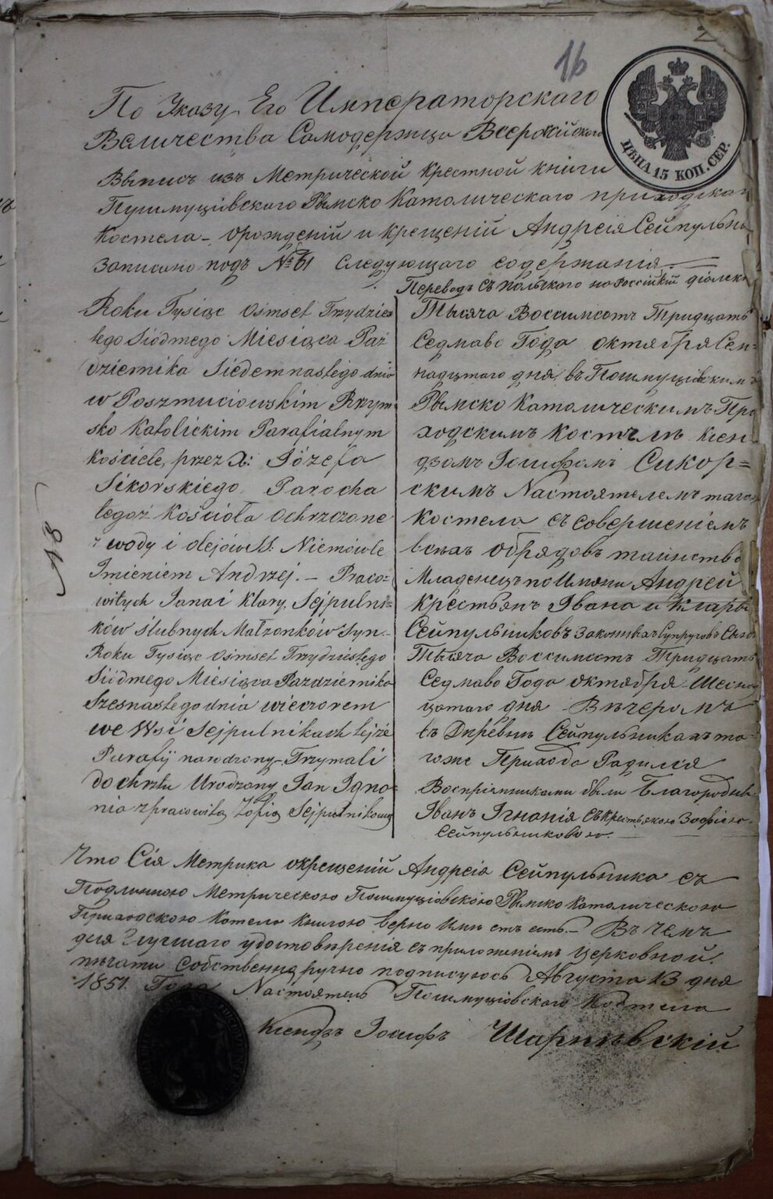 16
2
ЦѢНА 15 КОП. СЕР.
По Указу Его Императорского
Величества Самодержца Всероссійского
Выпись изъ Метрической Крестной книги
Пушмуцівского Рымско Католического приходского
Костела – орожденій и крещеній Андреія Сейпульника
Записано подъ № 61 следующаго содержанія
Roku Tysiąc Ośmset Trzydzies
tego Siódmego Miesiąca Paź
dziernika Siedemnastego dnia
w Poszmuciowskim Rzym
sko Katolickim Parafialnym
Kościele, przez X: Józefa
Sikorskiego, Parocha
tegoż Kościoła Ochrzczone
z wody i olejów St. Niemówle
Imieniem Andrzej. – Praco-
witych Jana i Klary Sejpulni-
ków Ślubnych Małzonków Syn –
Roku Tysiąc Ośmset Trzydziestego
Siódmego Miesiąca Pazdziernika
Szesnastego dnia wieczorem
we Wsi Sejpulnikach tejże
Parafij narodzony – Trzymali
do chrztu Urodzony Jan Igna-
nia z pracowitą Zofią Sejpulnikową
Переводъ съ Польского на Россійкій діолектъ
Тысяча Воссимсотъ Тридцать
Седмаво Года октября Сем-
надцтаго дня, въ Пошмуцівскимъ
Рымско Католическимъ При-
ходскимъ костелѣ Ксен-
дзомъ Іосифомъ Сикор=
скимъ Настоятелемъ таго
костела съ совершеніемъ
всѣхъ обрядовъ таинство
Младенецъ по Имяни Андрей
крестьянъ Ивана и Клары
Сейпульниковъ Законныхъ Супруговъ Сынъ
Тысяча Воссимсотъ Тридцать
Седмаво Года октября Шесна
цатаго дня – Вѣчеромъ
въ Деревни Сейпульникахъ то-
гожъ Прихода Радился
Воспріятниками были Благородные
Иванъ Игнанія съ крестьянкою Зофіею
Сейпульниковою.
18
Что Сія Метрика окрещеній Андреія Сейпульника съ
Подлинною Метрическою Пошмуцівскою Рымско Католическою
Приходскою Котела Книгою верно есть – Въ чемъ
для Лучшаго удостовѣренія съ приложеніемъ Церковной
пѣчати Собственноручно подписуюсь Августа 13 дня
1851 Года Настоятель Пошмуцівского Костела
Ксендзъ Іосифъ Шарпівскій